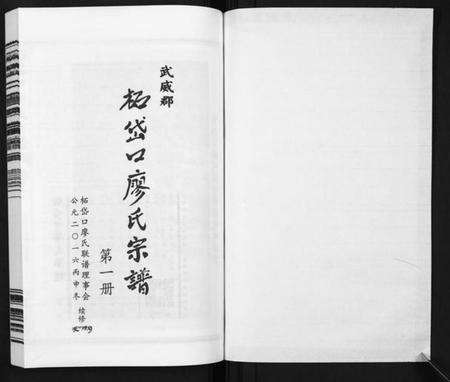 武威郡
柘岱口廖氏宗譜
第一册
柘岱口廖氏联谱理事会
公元二〇一六丙申冬
续修